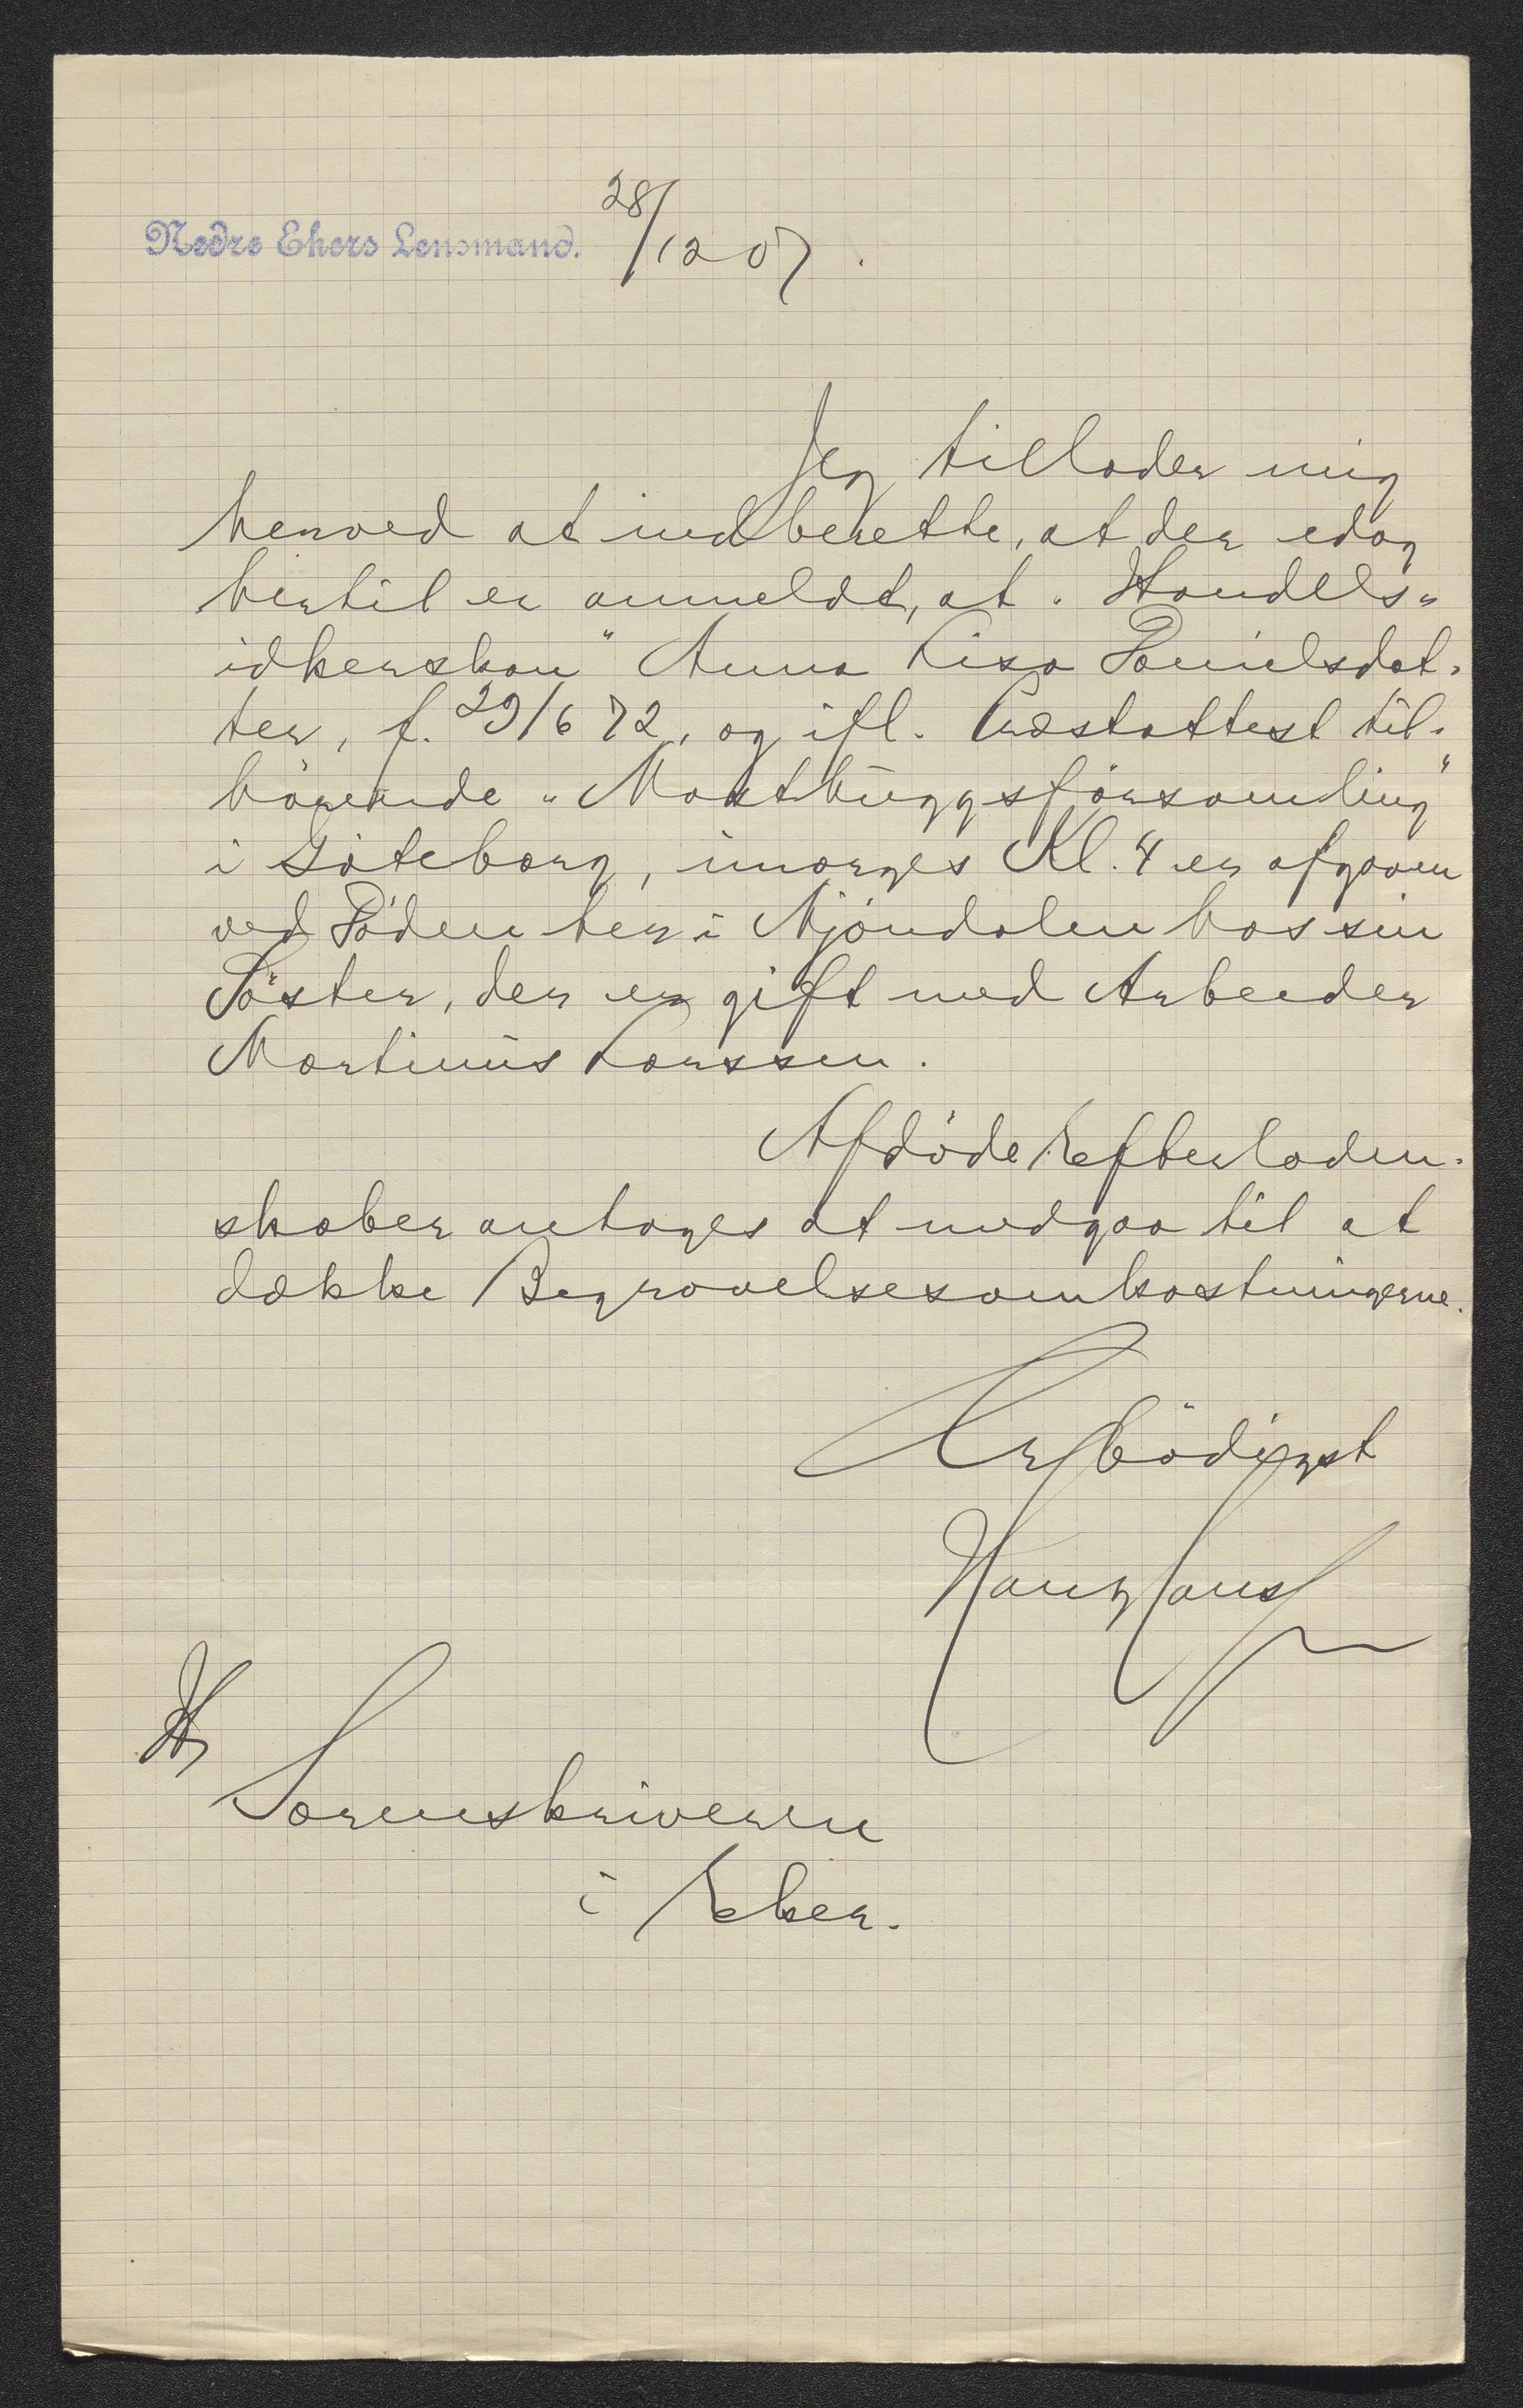 Nedre Ekers Lensmand. 28/12 07.
Jeg tillader mig
herved at indberette, at der idag
hertil er anmeldt, at „Handels„
idkerskan" Anna Lisa Danielsdat-
ter, f. 29/6 72, og ifl. Præstattest til-
hörende „Masthuggsförsamling"
i Göteborg, imorges Kl. 4 er afgaaen
ved Döden her i Mjöndalen hos sin
Söster, der er gift med Arbeider
Martinius Larssen.
Afdödes efterladen-
skaber antages at medgaa til at
dække Begravelsesomkostningerne.
Ærbödigst
Hr
Sorenskriveren
i Eker.